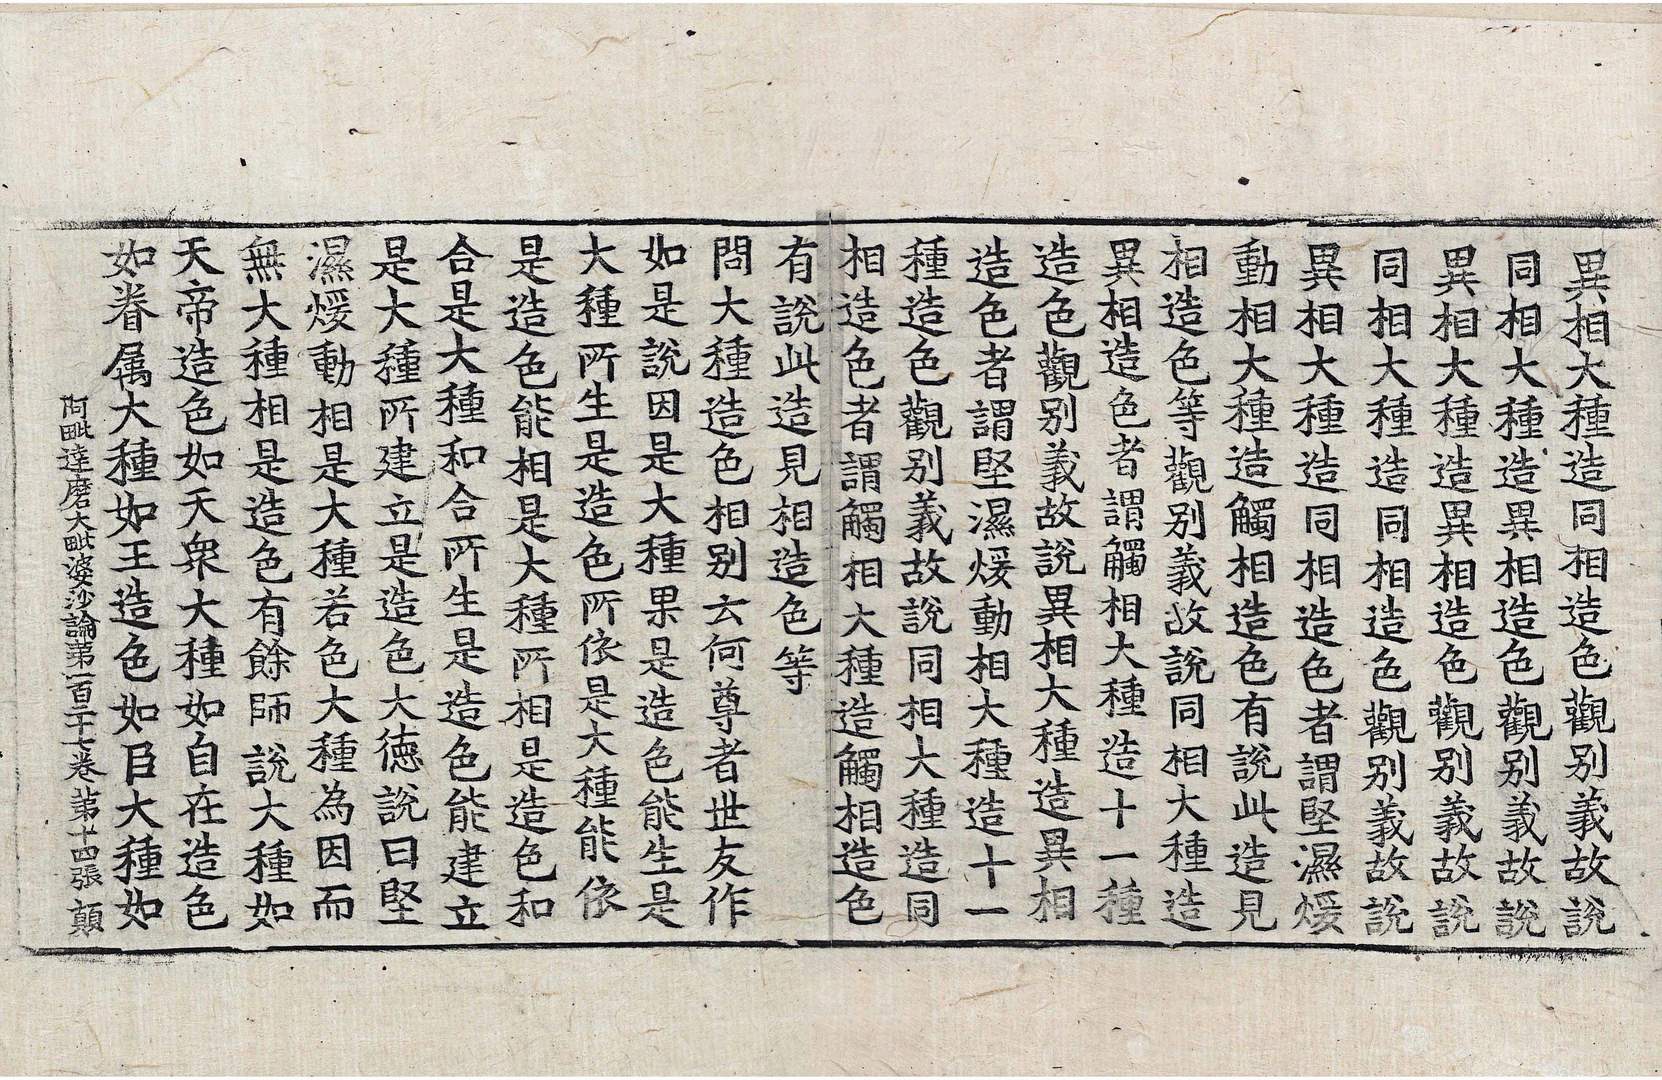 異相大種造同相造色觀别義故說
同相大種造異相造色觀别義故說
異相大種造異相造色觀别義故說
同相大種造同相造色觀别義故說
異相大種造同相造色者謂堅濕煖
動相大種造觸相造色有說此造見
相造色等觀别義故說同相大種造
異相造色者謂觸相大種造十一種
造色觀别義故說異相大種造異相
造色者謂堅濕煖動相大種造十一
種造色觀别義故說同相大種造同
相造色者謂觸相大種造觸相造色
有說此造見相造色等
問大種造色相别云何尊者世友作
如是說因是大種果是造色能生是
大種所生是造色所依是大種能依
是造色能相是大種所相是造色和
合是大種和合所生是造色能建立
是大種所建立是造色大德說曰堅
濕煖動相是大種若色大種為因而
無大種相是造色有餘師說大種如
天帝造色如天衆大種如自在造色
如眷属大種如王造色如臣大種如
阿毗達磨大毗婆沙論第一百二十七卷 第十四張 顛